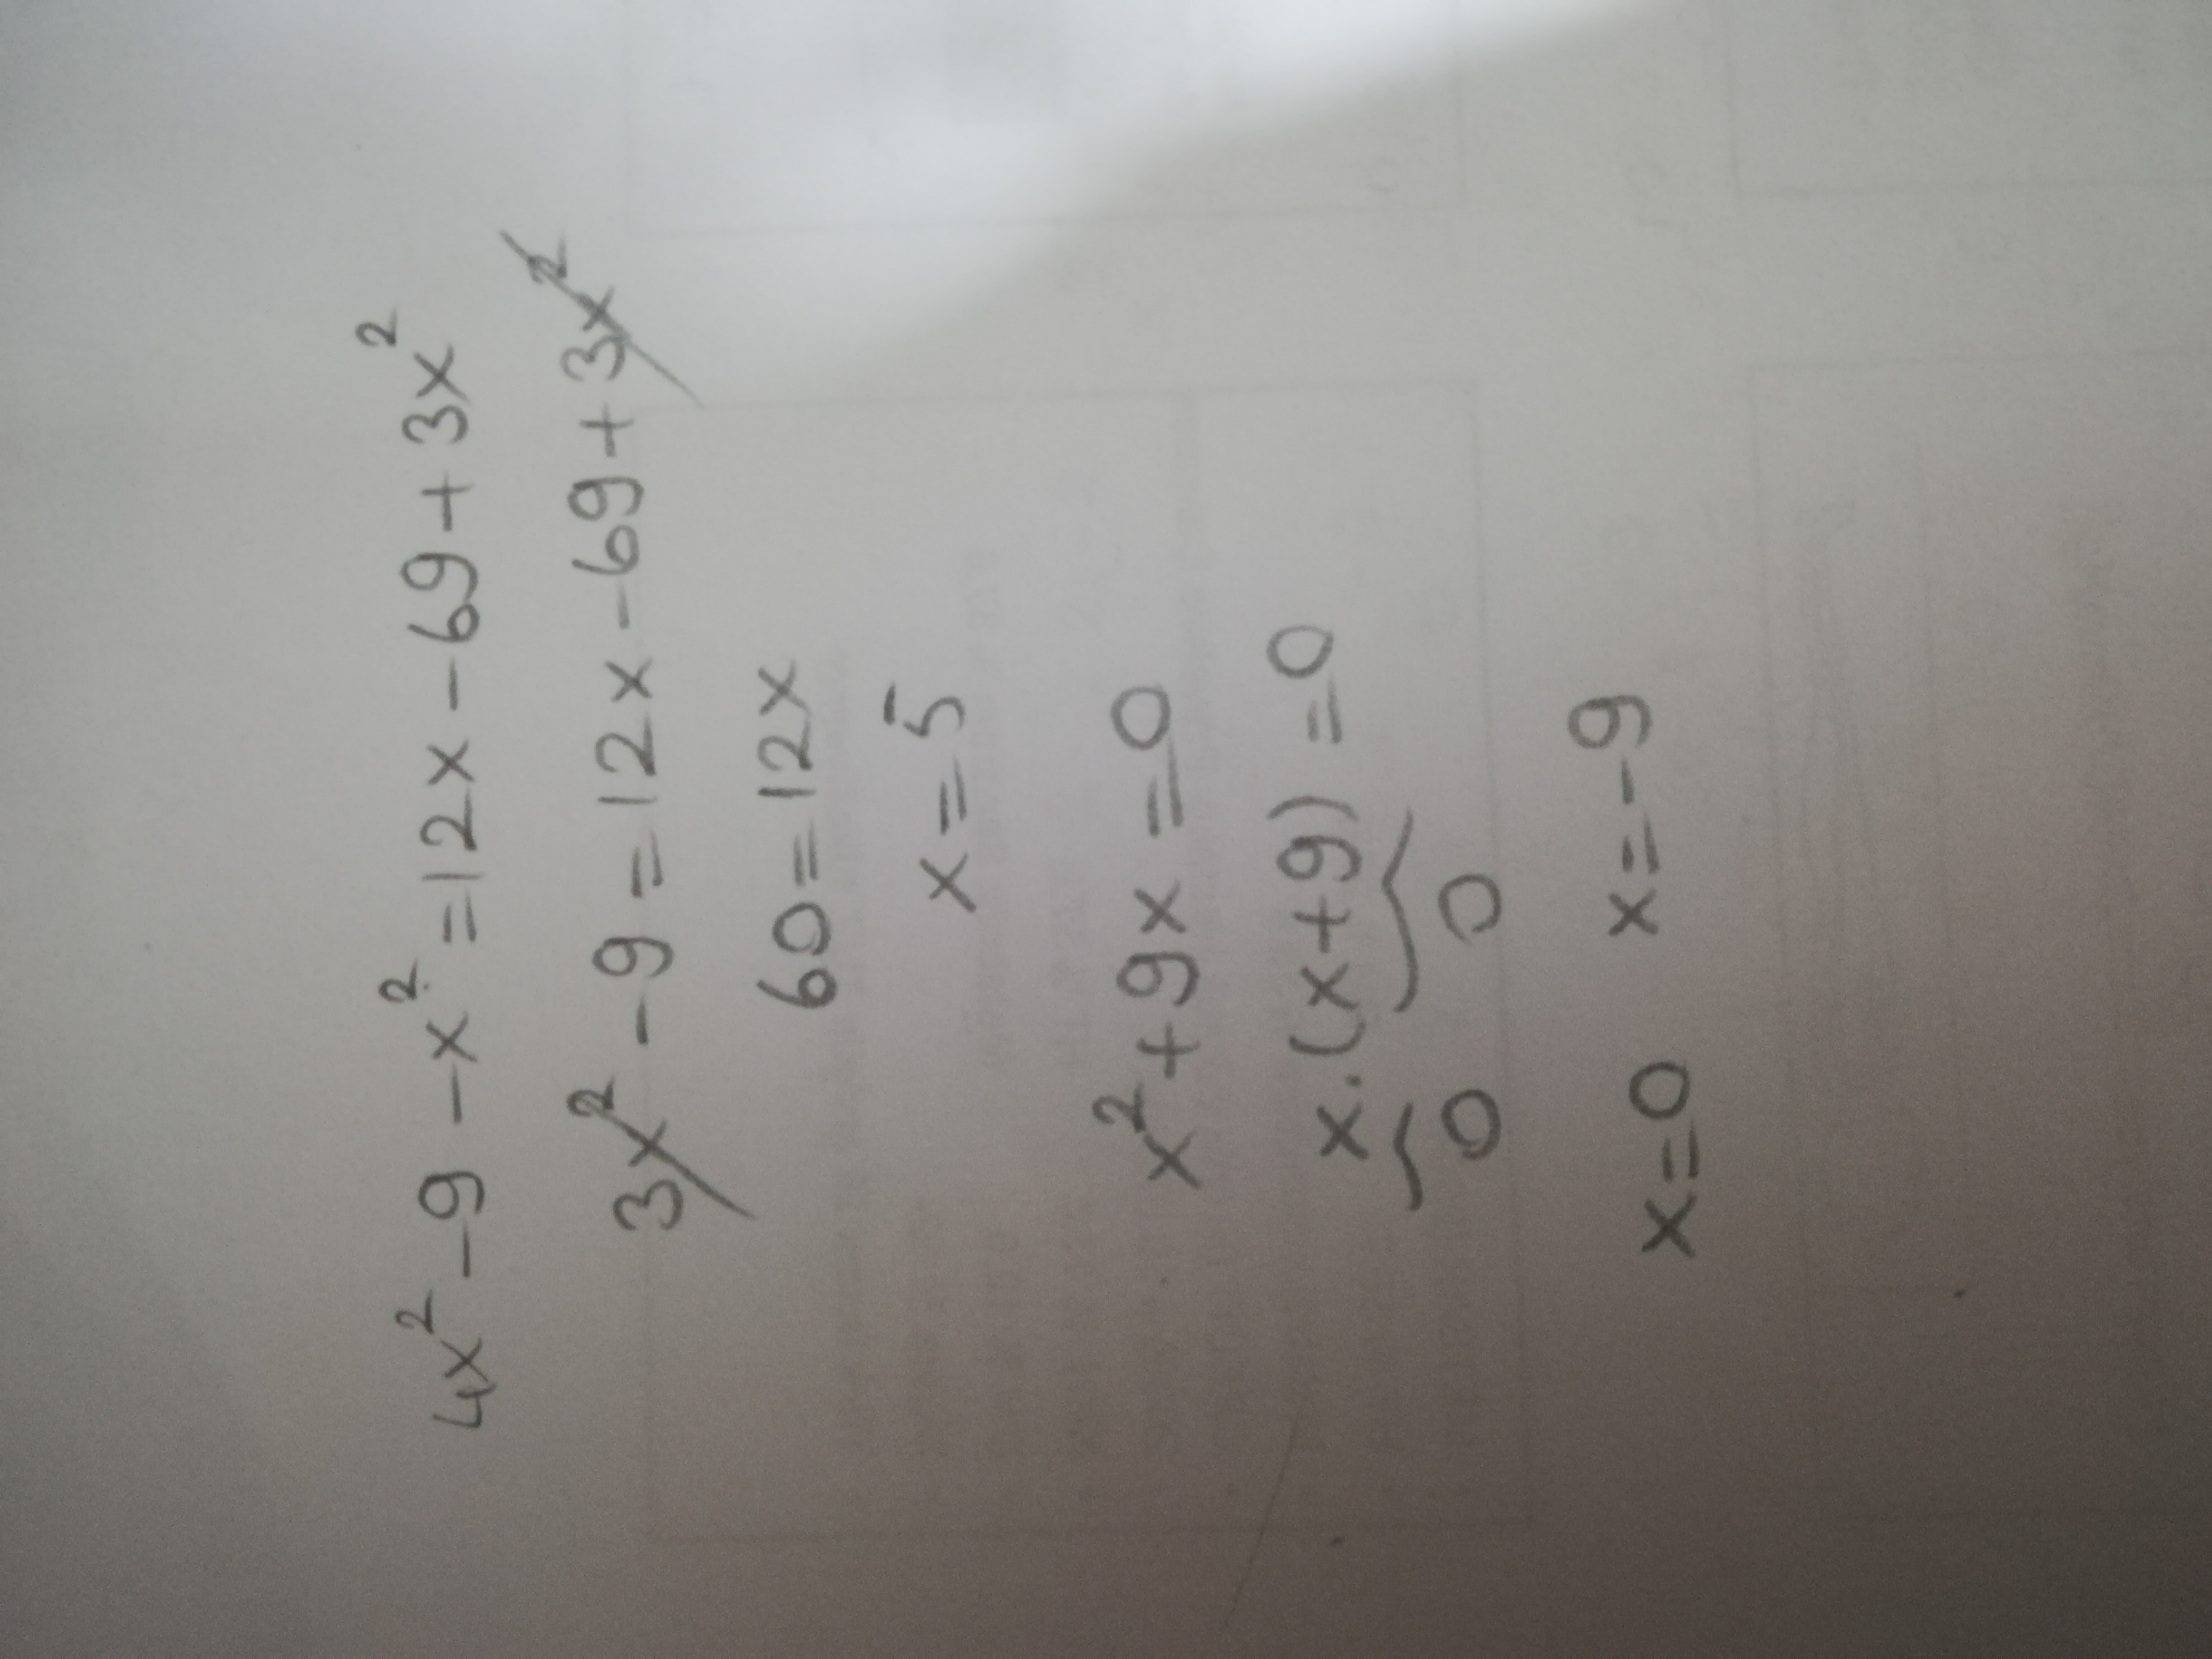 4x² - 9 - x² = 12x - 69 + 3x²
3x² - 9 = 12x - 69 + 3x²
60 = 12x
x = 5
x² + 9x = 0
x . (x+9) = 0
0 0
x = 0 x = -9